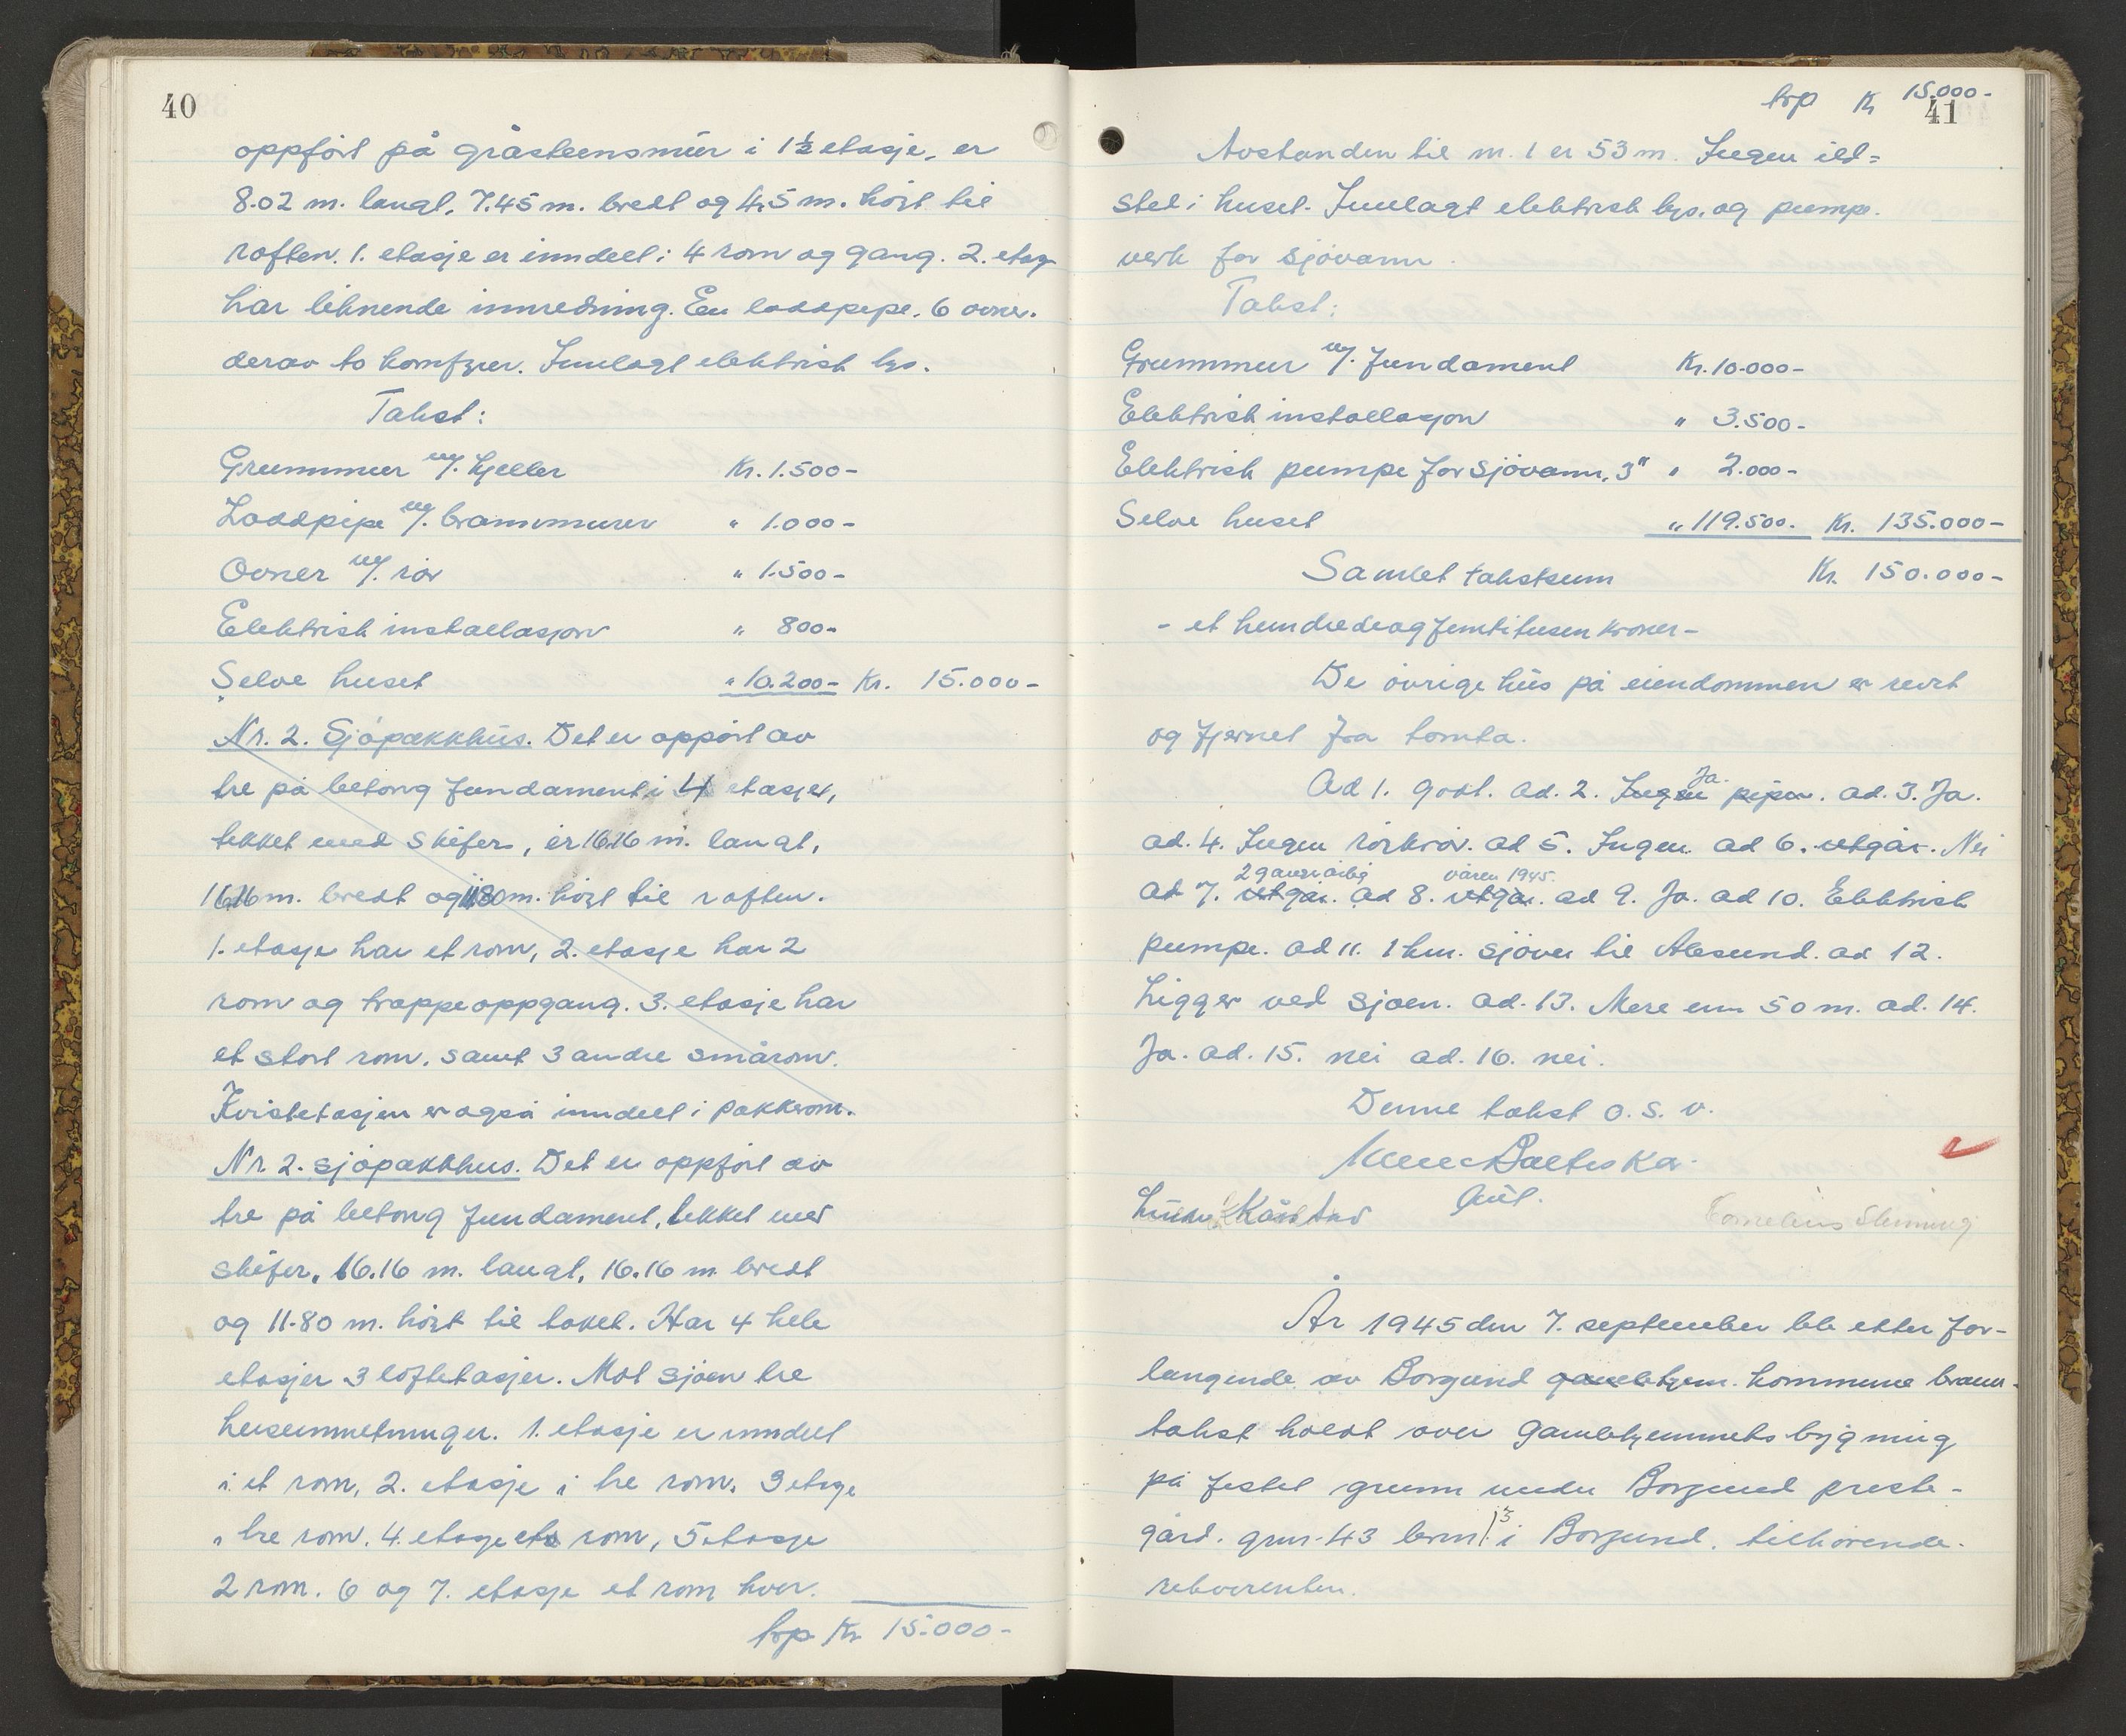 40
oppfört på gråsteensmür i 1½ etasje, er
8.02 m. langt, 7.45 m. bredt og 4,5 m. höit til
raften. 1. etasje er inndeel i 4 rom og gang. 2. etasje
har liknende innredning. Een loddpipe. 6 ovner.
derav to komfyrer. Innlagt elektrisk lys.
Takst:
Grunnmur m/. kjeller Kr. 1.500-
Loddpipe m/. brannmurer " 1.000-
Ovner m/. rör " 1.500-
Elektrisk installasjon " 800-
Selve huset " 10.200- Kr. 15.000-
Nr. 2. Sjöpakkhüs. Det er oppört av
tre på betong fundament i 4 etasjer,
tekket med skifer, er 16.16 m. langt,
16.16 m. bredt og 11.80 m. höit til raften.
1. etasje har et rom, 2. etasje har 2
rom og trappeoppgang. 3. etasje har
et stort rom, samt 3 andre smårom.
Kvistetasjen er også inndeelt i pakkrom.
Nr. 2. sjöpakkhus. Det er oppfört av
tre på betong fundament, tekket med
skifer, 16.16 m. langt, 16.16 m bredt
og 11.80 m. höit til taket. Har 4 hele
etasjer 3 loftetasjer. Mot sjöen tre
1. etasje er inndeelt
i et rom, 2. etasje i tre rom. 3 etasje
i tre rom. 4. etasje ets rom, 5 etasje
2 rom. 6 og 7. etasje et rom hver.
trp Kr 15.000-
trp Kr 15.000-
41
Avstanden til nr. 1 er 53 m. Ingen ild=
sted i huset. Innlagt elektrisk lys. og pumpe-
verk for sjövann.
Takst:
Grunnmur m/. fundament Kr. 10.000-
Elektrisk installasjon " 3.500-
Elektrisk pumpe for sjövann, 3" " 2.000-
Selve huset " 119.500. Kr. 135.000-
Samlet takstsum Kr. 150.000-
- et hundredeogfemtitusen kroner -
De övrige hüs på eiendommen er revet
og fjernet fra tomta.
Ad 1. godt. ad. 2. Ingen piper. Ja. ad. 3. Ja.
ad. 4. Ingen rörkrör. ad 5. Ingen. ad 6. utgår. Nei
ad 7. utgår. 2 ganger årlig ad 8. utgår. våren 1945. ad 9. Ja. ad 10. Elektrisk
pumpe. ad 11. 1 km. sjöver til Ålesund. ad 12.
Ligger ved sjøen. ad. 13. Mere enn 50 m. ad. 14.
Ja. ad. 15. nei ad. 16. nei.
Denne takst o. s. v.
Cornelius Slinning
År 1945 den 7. september ble etter for-
langende av Borgund gamlehjem. kommune brann-
takst holdt over gamlehjemmets bygning
på festet grunn under Borgund preste-
gård. gnr. 43 brnr 1.3 i Borgund. tilhörende.
rekvirenten.